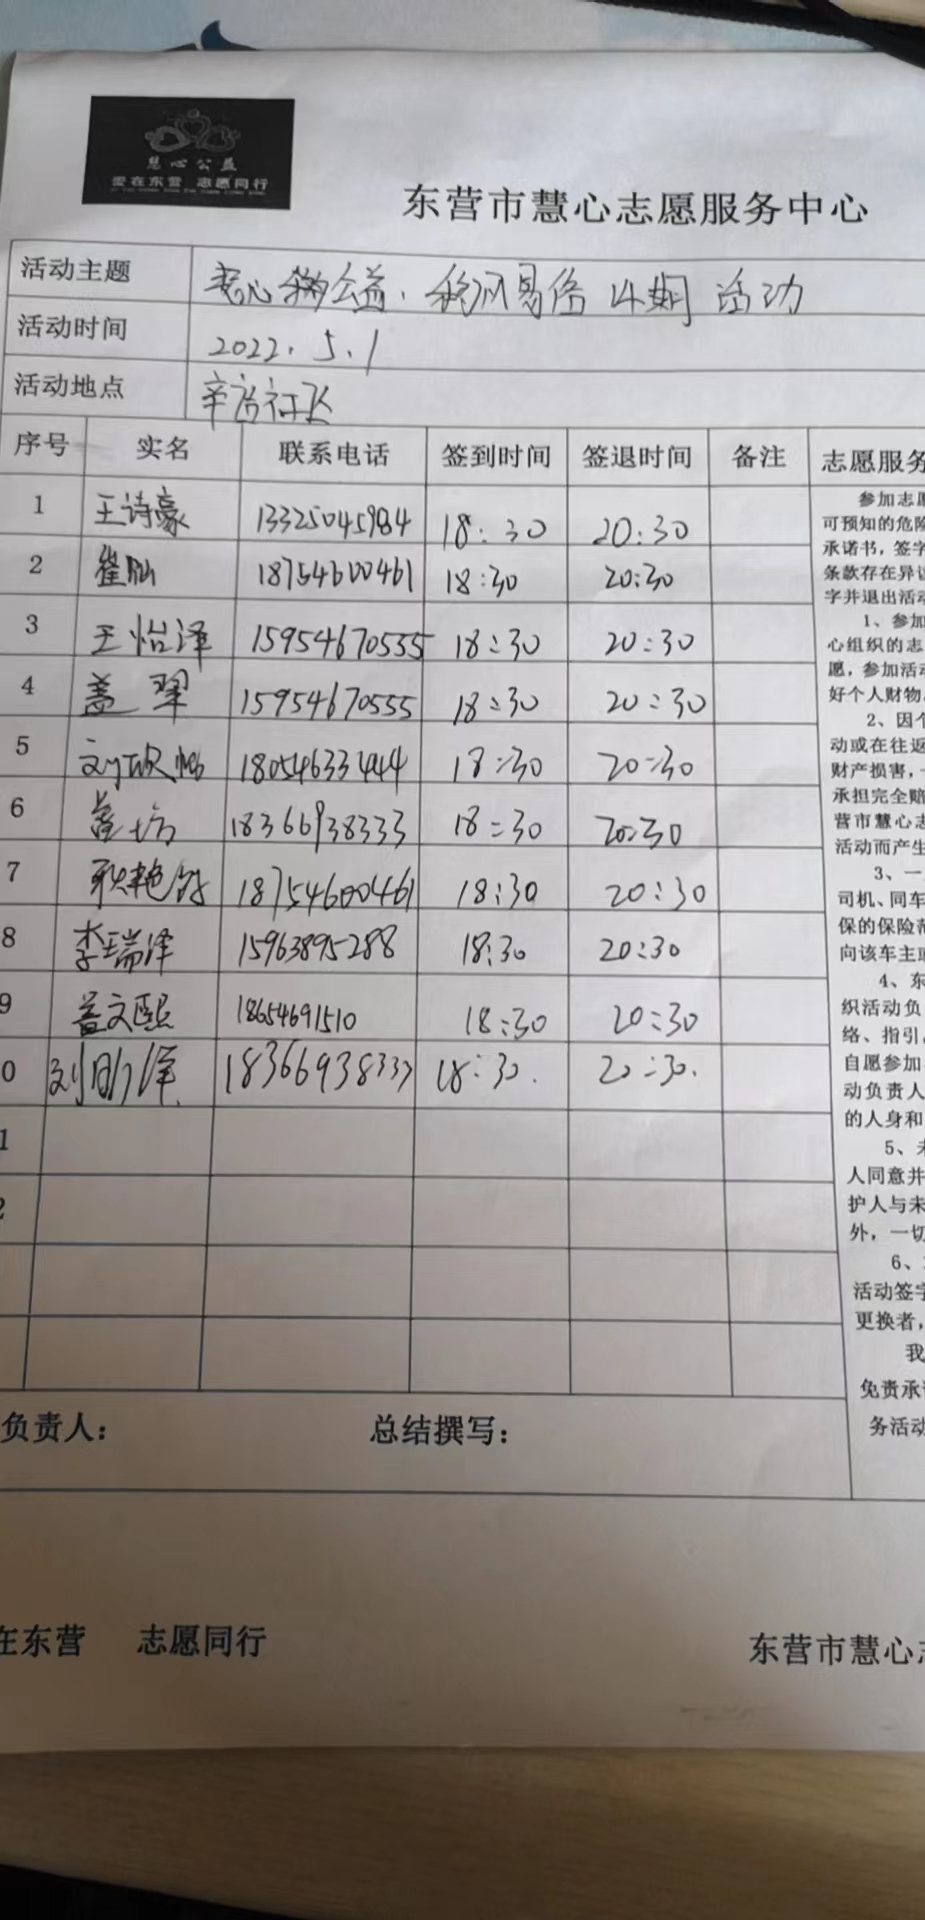 慧心公益
爱在东营 志愿同行
东营市慧心志愿服务中心
活动主题 慧心 公益、移风易俗 4期 活动
活动时间 2022.5.1
活动地点
序号 实名 联系电话 签到时间 签退时间 备注
1 王诗豪 13325045984 18:30 20:30
2 崔灿 18754600461 18:30 20:30
3 王怡泽 15954670555 18:30 20:30
4 盖翠 15954670555 18:30 20:30
5 刘 18054633444 18:30 20:30
6 18366938333 18:30 20:30
7 耿艳 18754600461 18:30 20:30
8 李瑞泽 15963895288 18:30 20:30
9 文熙 18654691510 18:30 20:30
0 刘 泽 18366938333 18:30. 20:30.
1
2
负责人： 总结撰写：
志愿服务
参加志愿
可预知的危险
承诺书，签字
条款存在异议
字并退出活动
1、参加
心组织的志
愿，参加活动
好个人财物。
2、因个
动或在往返
财产损害，
承担完全赔
营市慧心志
活动而产生
3、一
司机、同车
保的保险范
向该车主或
4、东
织活动负
络、指引，
自愿参加
动负责人
的人身和
5、未
人同意并
护人与未
外，一切
6、
活动签字
更换者，
我
免责承诺
务活动
在东营 志愿同行
东营市慧心志